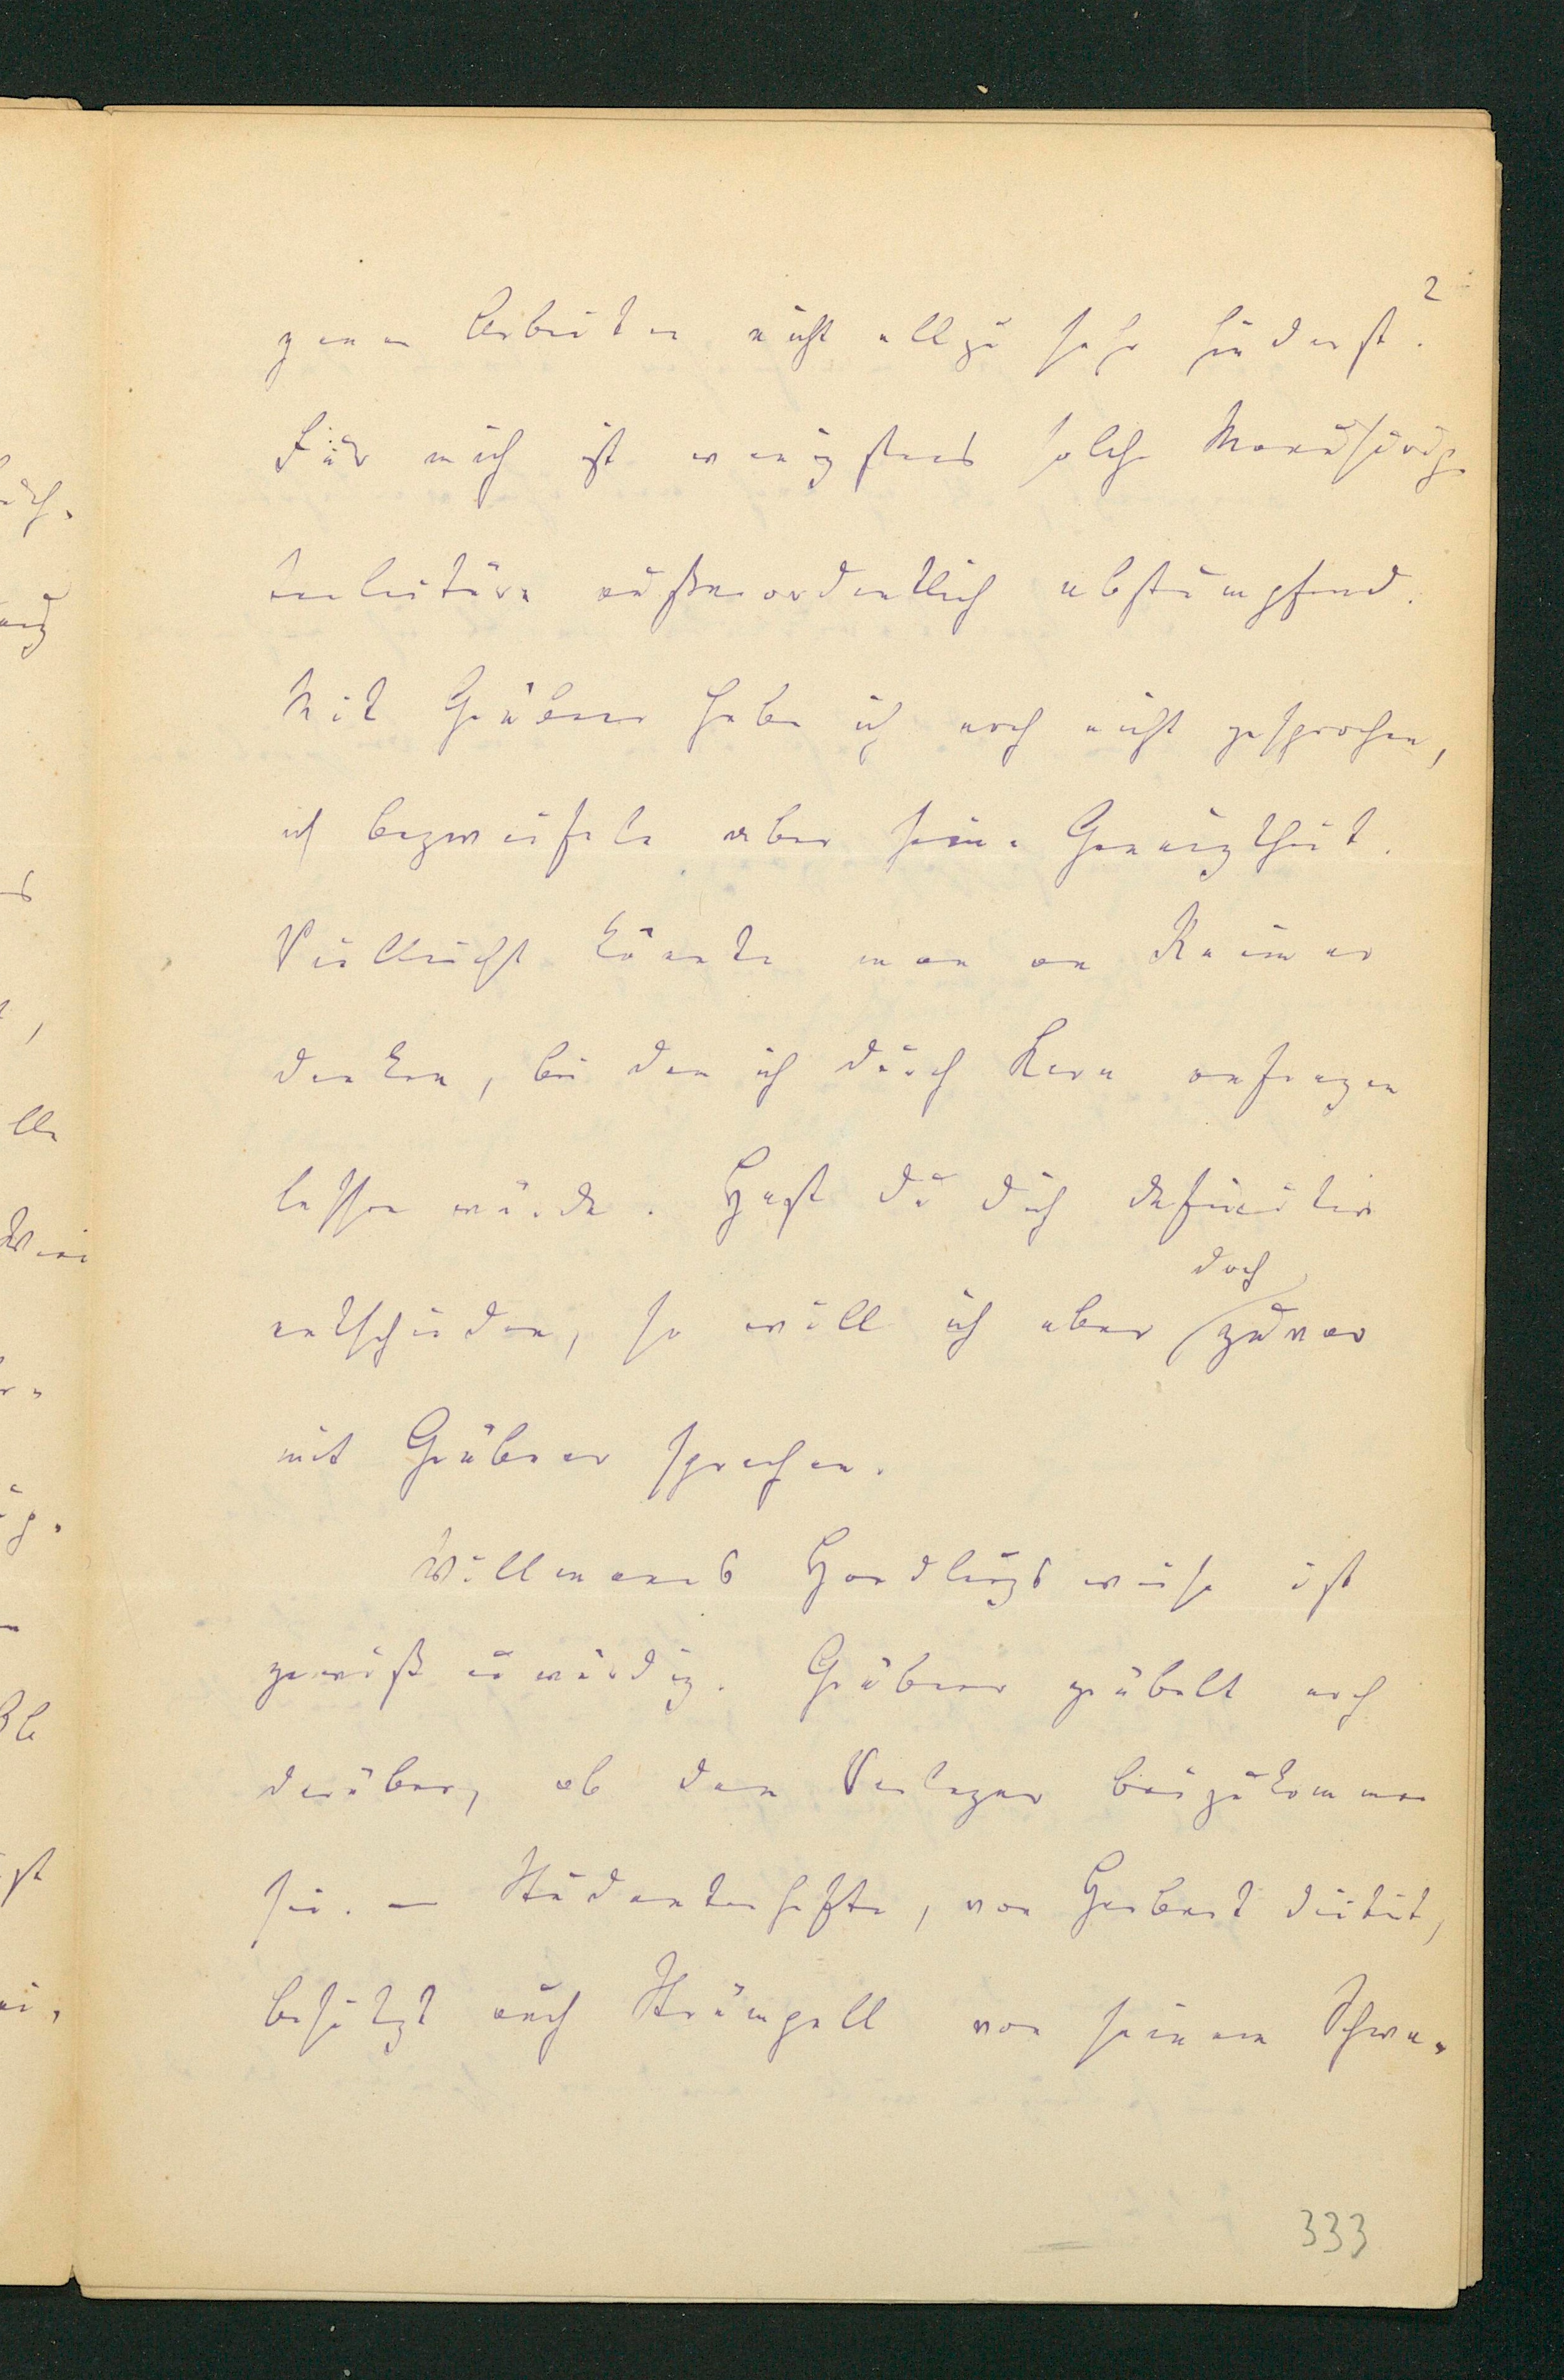 2
genen Arbeiten nicht allzu sehr hinderst.
Für mich ist wenigstens solche Manuscrip-
tenlectüre außerordentlich abstumpfend.
Mit Gräbner habe ich noch nicht gesprochen,
ich bezweifele aber seine Geneigtheit.
Vielleicht könnte man an Reimer
denken, bei dem ich durch Kern anfragen
lassen würde. Hast du dich definitiv
entschieden, so will ich aber doch zuvor
mit Gräbner sprechen.
Willmanns Handlungsweise ist
gewiß unwürdig. Gräbner grübelt noch
darüber, ob dem Verleger beizukommen
sei. — Studentenhefte, von Herbart dictirt,
besitzt auch Strümpell von seinem Schwa-
333